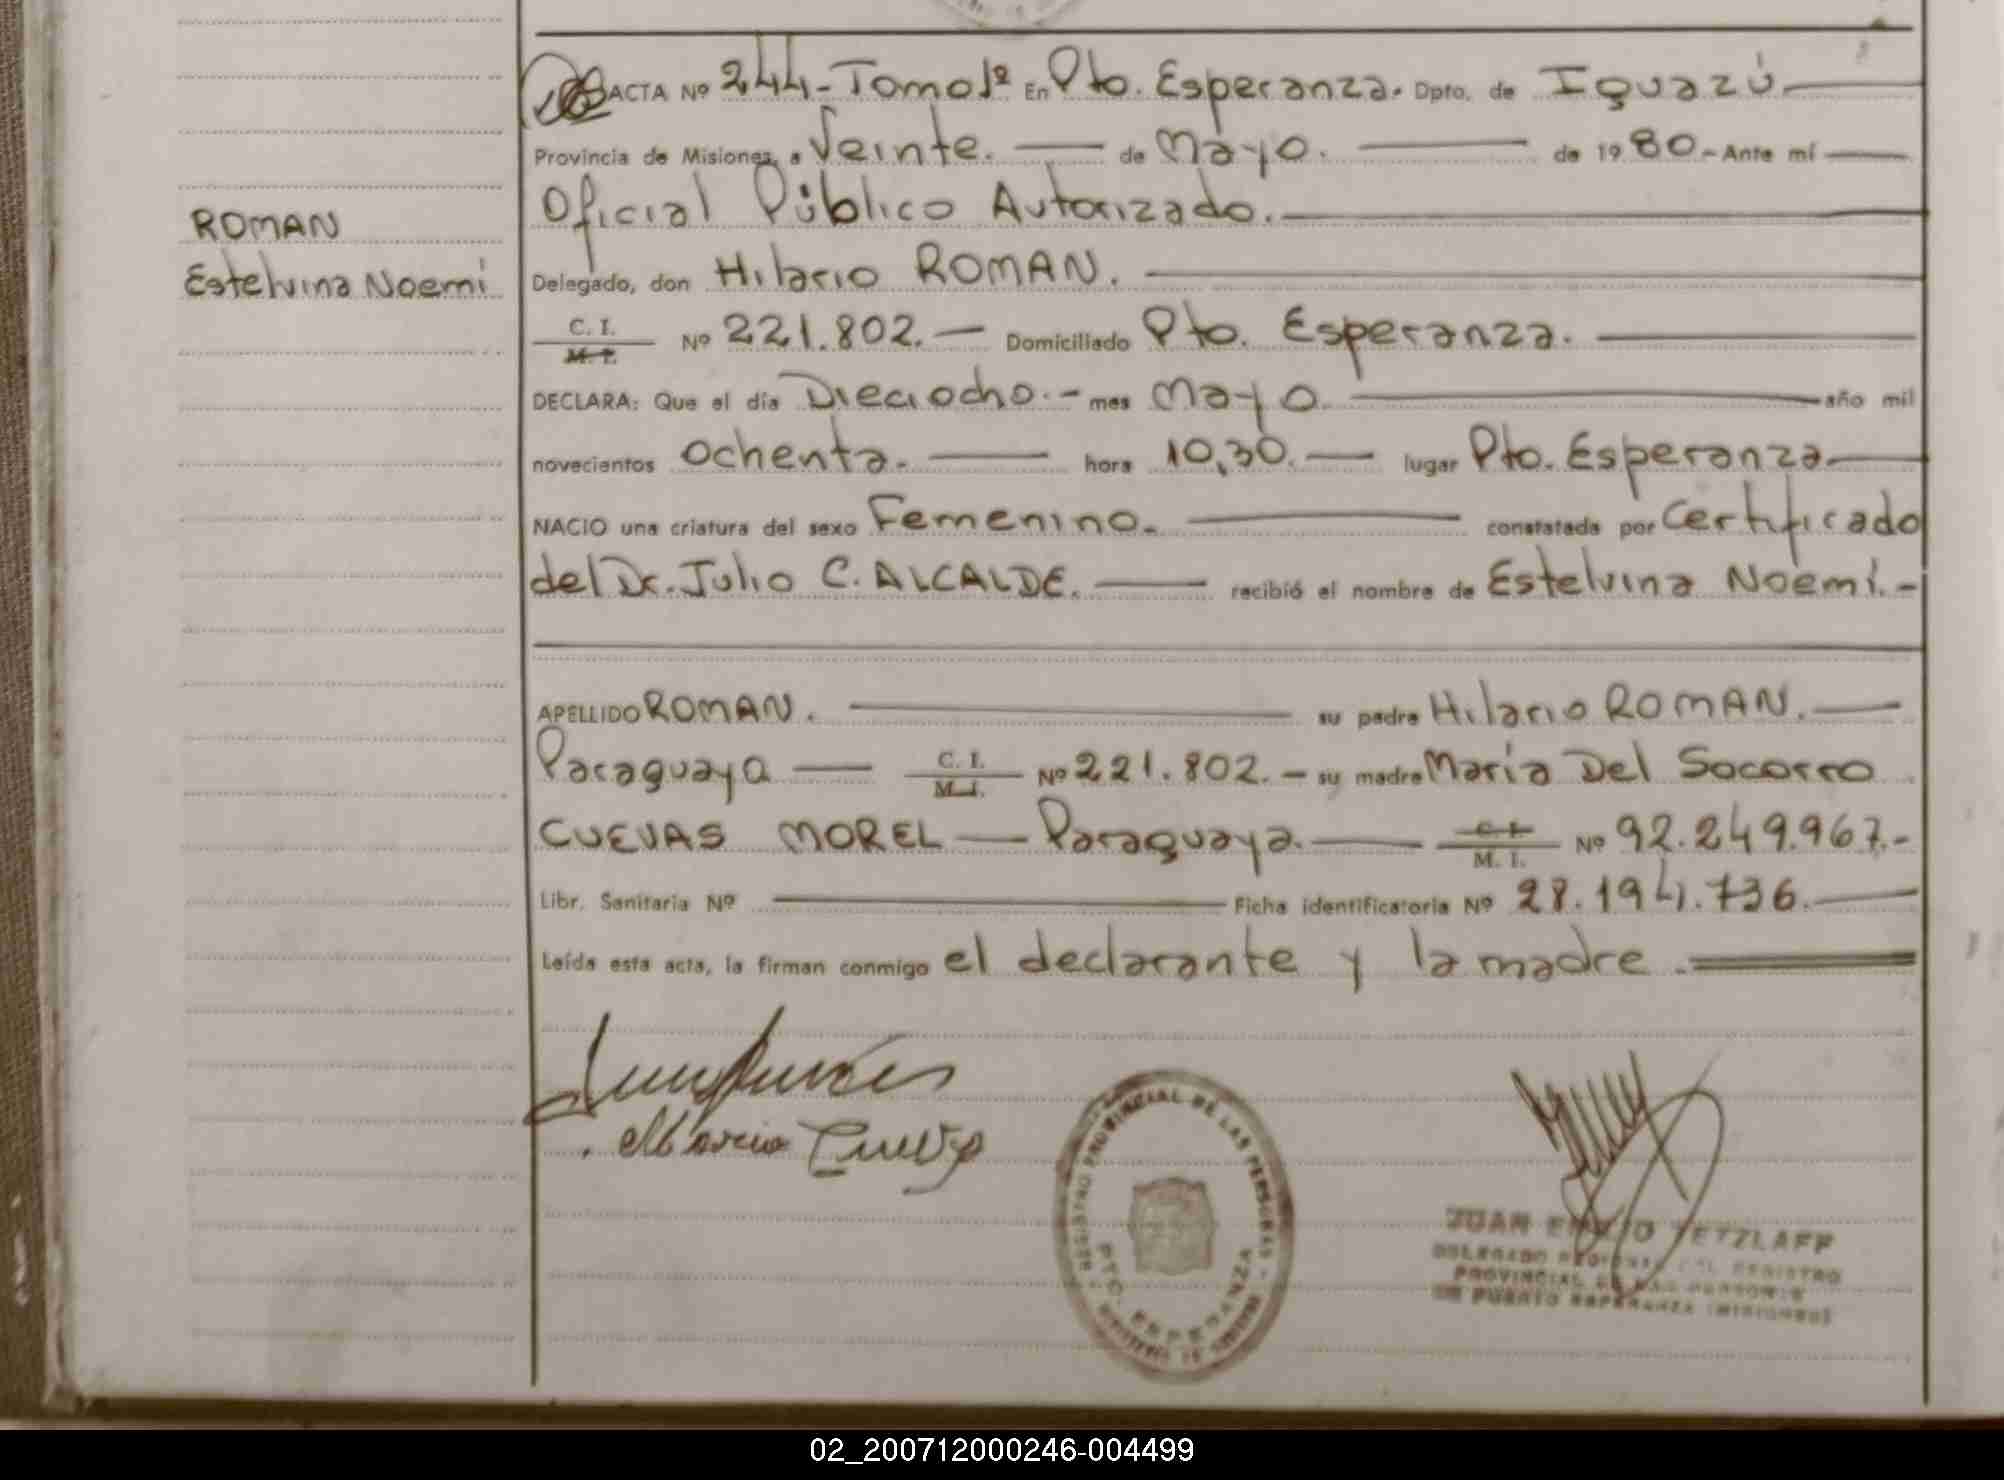 ACTA Nº 244.- Tomo 1º En Pto. Esperanza. Dpto. de Iguazú
Provincia de Misiones, a Veinte. de Mayo. de 1980.- Ante mí
Oficial Público Autorizado.
ROMAN
Estelvina Noemí
Delegado, don Hilario ROMAN.
C. I.
M. I.
Nº 221.802.- Domiciliado Pto. Esperanza.
DECLARA: Que el día Dieciocho.- mes Mayo. año mil
novecientos Ochenta. hora 10,30. lugar Pto. Esperanza
NACIO una criatura del sexo Femenino. constatada por Certificado
del Dr. Julio C. ALCALDE. recibió el nombre de Estelvina Noemí.-
APELLIDO ROMAN. su padre Hilario ROMAN.
Paraguaya C. I. M. I. Nº 221.802.- su madre María Del Socorro
CUEVAS MOREL Paraguaya. C. I. M. I. Nº 92.249.967.-
Libr. Sanitaria Nº Ficha identificatoria Nº 28.194.736.
Leída esta acta, la firman conmigo el declarante y la madre.
Maria Cueva
REGISTRO PROVINCIAL DE LAS PERSONAS
PTO. ESPERANZA
JUAN EMILIO TETZLAFF
DELEGADO REGIONAL DEL REGISTRO
PROVINCIAL DE LAS PERSONAS
DE PUERTO ESPERANZA (MISIONES)
02_200712000246-004499